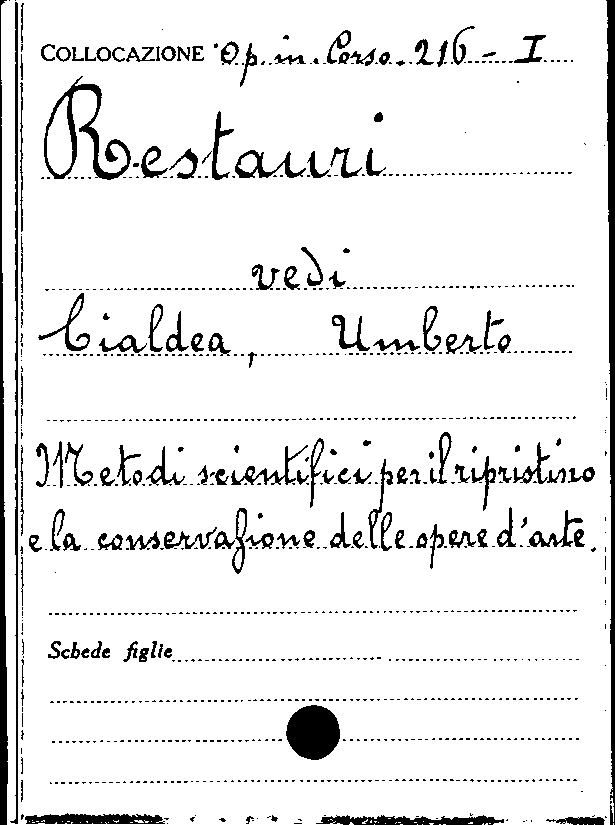 COLLOCAZIONE Op. in. Corso. 216 - I
Restauri
vedi
Cialdea, Umberto
Metodi scientifici per il ripristino
e la conservazione delle opere d'arte.
Schede figlie